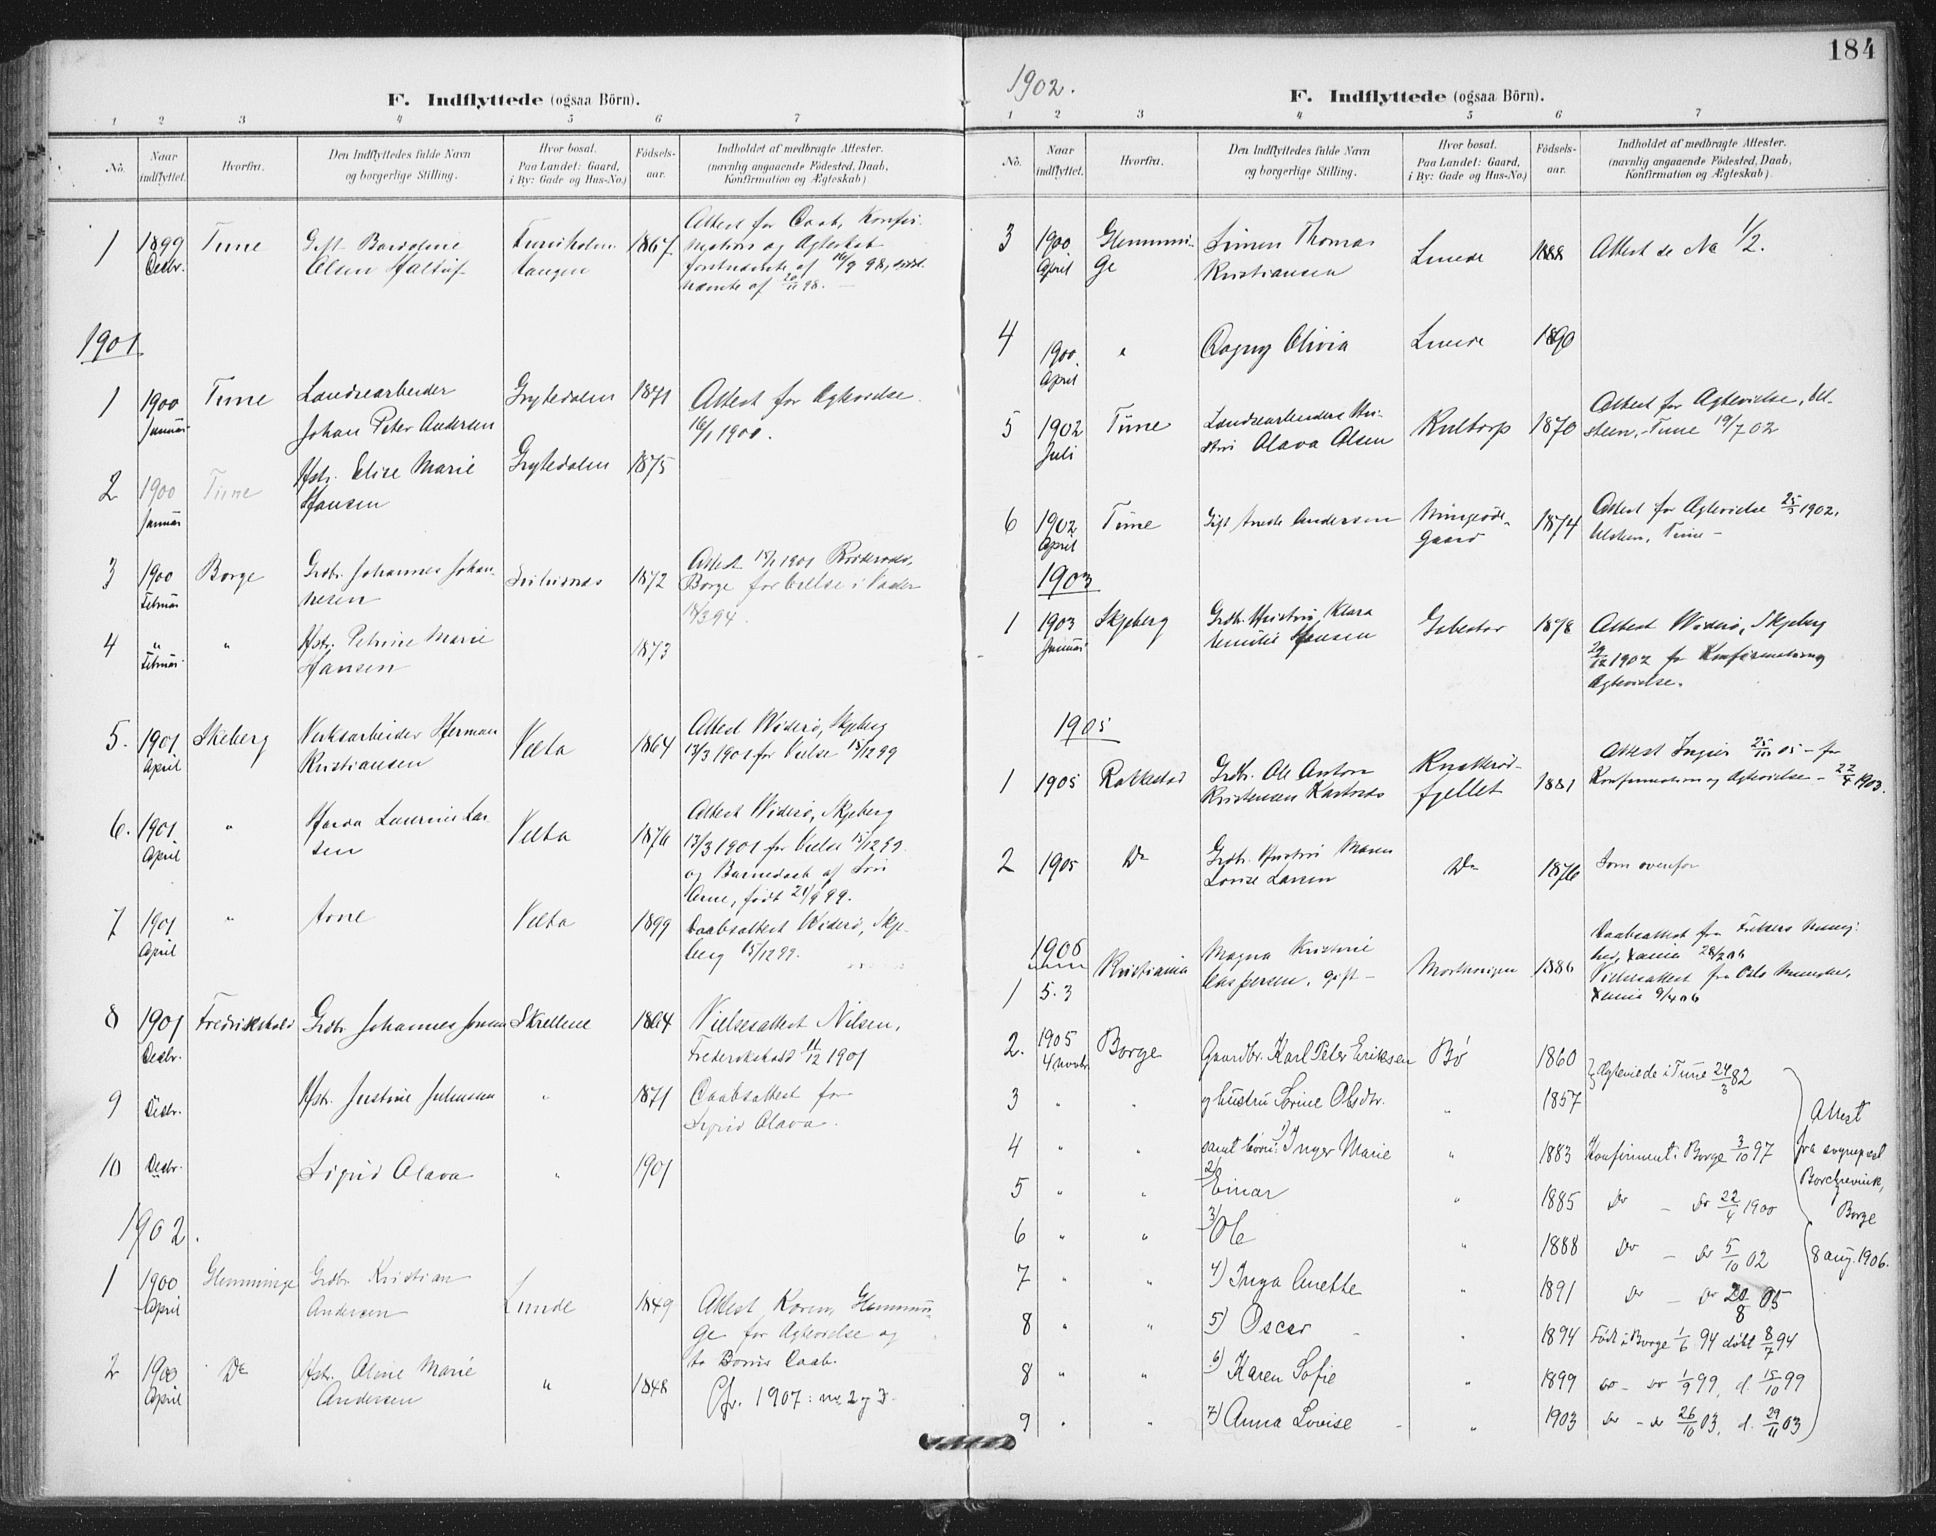 F. Indflyttede (ogsaa Börn).
1 2 3 4 5 6 7
No. Naar indflyttet. Hvorfra. Den Indflyttedes fulde Navn og borgerlige Stilling. Hvor bosat. Paa Landet: Gaard, i By: Gade og Hus-No.) Födsels-aar. Indholdet af medbragte Attester. (navnlig angaaende Födested, Daab, Konfirmation og Ægteskab)
1 1899 Tune Gift 1867 Attest for Daab, Konfir-
Decbr. Olsen tangen mation og Ægteskab
af 16/9 98,
af 20/11 98.
1901
1 1900 Tune Grytedalen 1871 Attest for Ægtevielse
Januar Johan Peter Andersen 16/1 1900.
2 1900 Tune Hstr. Elise Marie Grytedalen 1875
Januar Hansen
3 1900 Borge Grdbr. Johannes Johan- 1872 Attest 15/1 1901
Februar nesen Borge for
4 " " Hstr. Petrine Marie 1873
Februar Hansen
5. 1901 Skeberg Verksarbeider Herman Velta 1864 Attest Widerö, Skjeberg
April Kristiansen 13/3 1901 for Vielse 15/12 99
6. 1901 " Laurine Lar- Velta 1876 Attest Widerö, Skjeberg
April sen 13/3 1901 for Vielse 15/12 99.
og Barnedaab af Sön
Arne, födt 21/9 99.
7 1901 " Arne Velta 1899 Daabsattest Widerö, Skje-
April berg 15/12 99.
8 1901 Fredrikshald Grdbr. Johannes Jensen Skrellene 1864 Vielsesattest Nilsen,
Decbr. Frederikshald 11/12 1901
9 Decbr. Hstr. Justine Johansen " 1871 Daabsattest for
Sigrid Olava.
10 Decbr. Sigrid Olava " 1901
1902.
1 1900 Glemminge Grdbr. Kristian Lunde 1849 Attest Koren, Glemmin-
April Andersen ge for Ægtevielse og
to Börns Daab.
2 1900 Do Hstr. Aline Marie " 1848 Cfr. 1907: no 2 og 3.
April Andersen
184
1902.
F. Indflyttede (ogsaa Börn).
1 2 3 4 5 6 7
No. Naar indflyttet. Hvorfra. Den Indflyttedes fulde Navn og borgerlige Stilling. Hvor bosat. Paa Landet: Gaard, i By: Gade og Hus-No.) Födsels-aar. Indholdet af medbragte Attester. (navnlig angaaende Födested, Daab, Konfirmation og Ægteskab).
3 1900 Glemmin- Simen Thomas Lunde 1888 Attest se No 1/2.
April ge Kristiansen
4 1900 " Dagny Olivia Lunde 1890
April
5 1902 Tune Hu- Kultorp 1870 Attest for Ægtevielse, Ul-
Juli stru Olava Olsen steen, Tune 19/7 02
6 1902 Tune Gift Andersen 1874 Attest for Ægtevielse 1902,
April gaard Tune
1903
1 1903 Skjeberg Grdbr. Hustru, Klara 1878 Attest Widerö, Skjeberg
Januar Hansen 29/12 1902 for Konfirmation og
Ægtevielse.
1905
1 1905 Rakkestad Grdbr. Ole Anton Knatteröd- 1881 Attest Ingier 25/10 05 - for
Kristensen fjellet Konfirmation og Ægtevielse - 22/4 1903.
2 1905 Do Grdbr. Hustru Maren Do 1876 Som ovenfor
Lovise Larsen
1906 Magna Kristine Daabsattest fra
Kristiania Caspersen, gift - 1886 28/2 06
1 5.3 Vielsesattest fra Oslo
Xania 9/4 06
2. 1905 Borge Gaardbr. Karl Peter Eriksen Bö 1860 Ægteviede i Tune 24/3 82
4 novbr.
3 " " og hustru Sorine Olsdtr. " 1857
4 " " samt börn: 1) Inger Marie " 1883 Konfirment i Borge 3/10 97
5 " " 2) Einar " 1885 Do - do 22/4 1900
6 " " 3) Ole " 1888 Do - do 5/10 02
7 " " 4) Inga Anette " 1891 do - do 20/8 05
8 " " 5) Oscar " 1894 Födt i Borge 1/6 94 döbt 8/7 94
8 " " 6) Karen Sofie " 1899 do - do 1/9 99, d. 15/10 99
9 " " 7) Anna Lovise " 1903 do - do 26/10 03, d. 29/11 03
Attest
fra sogneprest
Borchrevink,
Borge
8 aug. 1906.